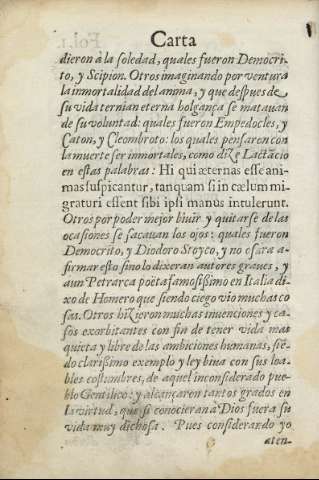 Carta
dieron à la soledad, quales fueron Democri-
to, y Scipion. Otros imaginando por ventura
la inmortalidad del anima, y que despues de
su vida ternian eterna holgança se matauan
de su voluntad: quales fueron Empedocles, y
Caton, y Cleombroto: los quales pensaron con
la muerte ser inmortales, como dize Lactãcio
en estas palabras: Hi qui æternas esse ani-
mas suspicantur, tanquam si in cælum mi-
graturi essent sibi ipsi manus intulerunt.
Otros por poder mejor biuir y quitarse de las
ocasiones se sacauan los ojos: quales fueron
Democrito, y Diodoro Stoyco, y no osara a-
firmar esto sino lo dixeran autores graues, y
aun Petrarca poeta famosissimo en Italia di-
xo de Homero que siendo ciego vio muchas co
sas. Otros hizieron muchas inuenciones y ca-
sos exorbitantes con fin de tener vida mas
quieta y libre de las ambiciones humanas, siẽ-
do clarissimo exemplo y ley biua con sus loa-
bles costumbres, de aquel inconsiderado pue-
blo Gentilico: y alcançaron tantos grados en
la virtud, que si conocieran a Dios fuera su
vida muy dichosa. Pues considerando yo
aten-